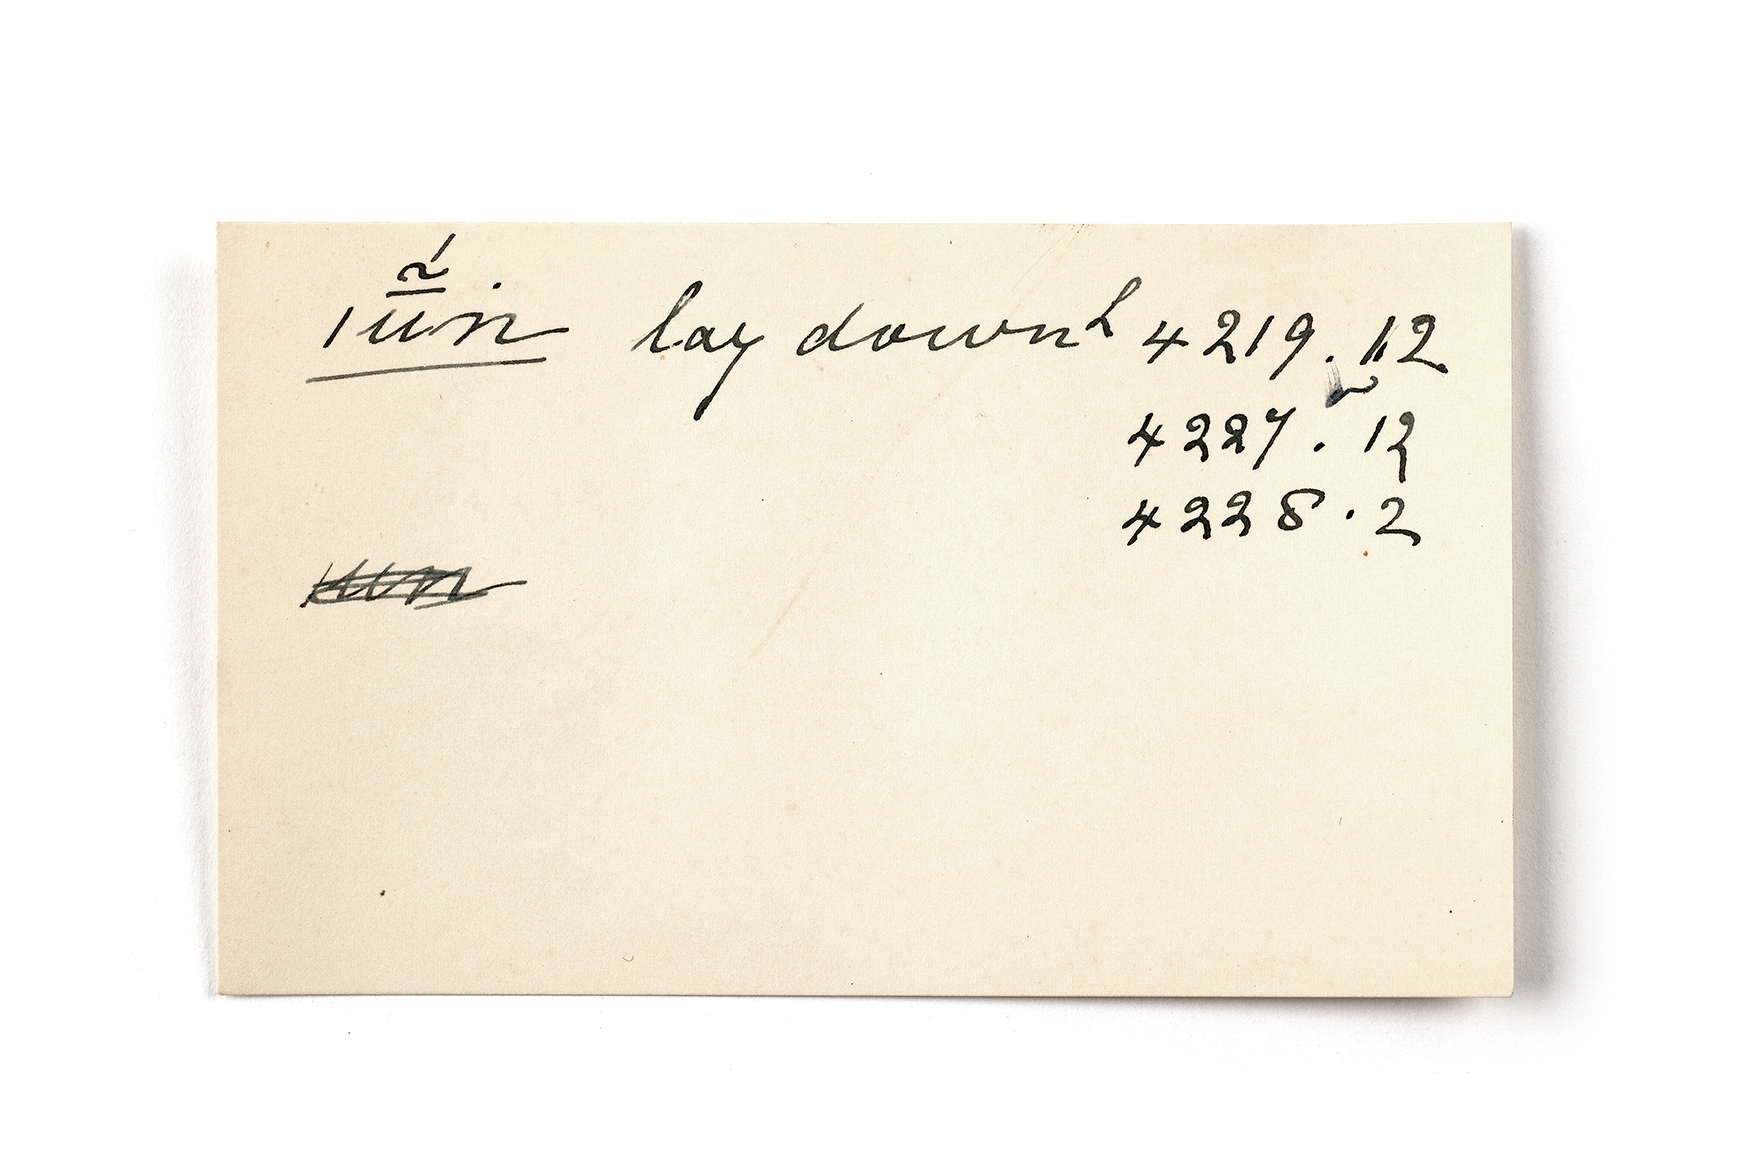 ǀū̃́ṅ lay down L 4219.12
4227.12
4228.2